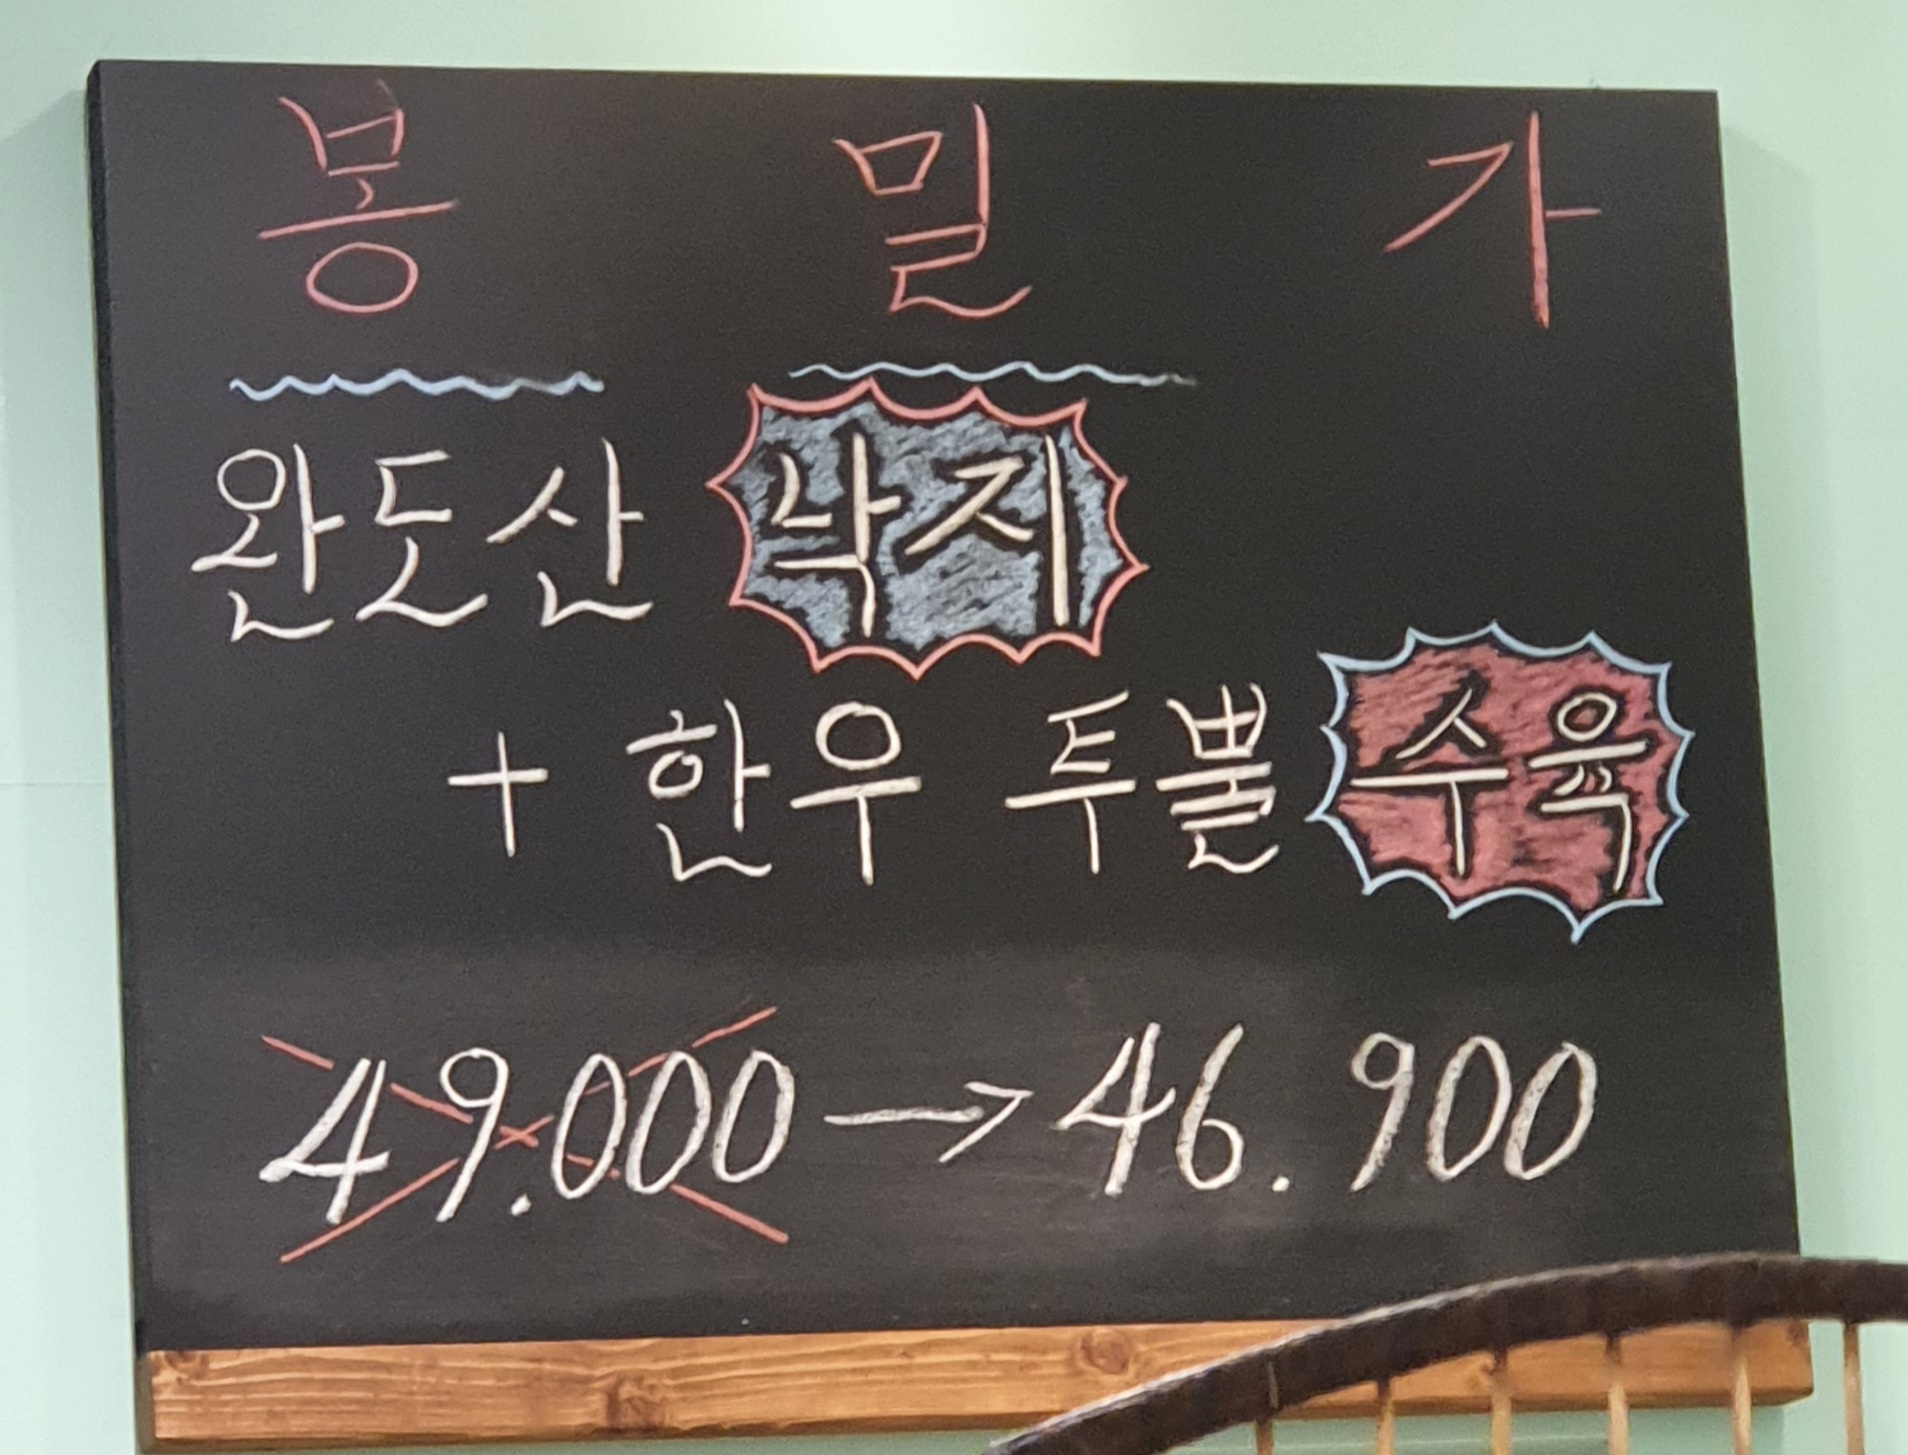 봉 밀 가
완도산 낙지
+ 한우 투뿔 수육
49.000 → 46.900